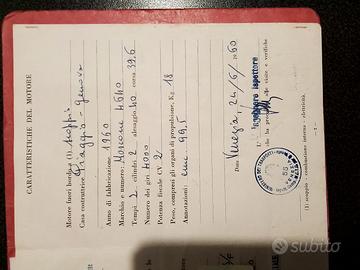 CARATTERISTICHE DEL MOTORE
Motore fuori bordo (1)
Casa costruttrice Piaggio - Genova
Anno di fabbricazione 1960
Marchio e numero: Moscone 4640
Tempi 2 cilindri 2 alesaggio 40 corsa 39,6
Numero dei giri 4000
Potenza fiscale CV 2
Peso, compresi gli organi di propulsione, Kg. 18
Annotazioni: cmc 99,5
Data Venezia, 24/6/1960
L' Ingegnere Ispettore
che ha proceduto alle visite e verifiche
(1) scoppio - combustione interna - elettricità.
subito